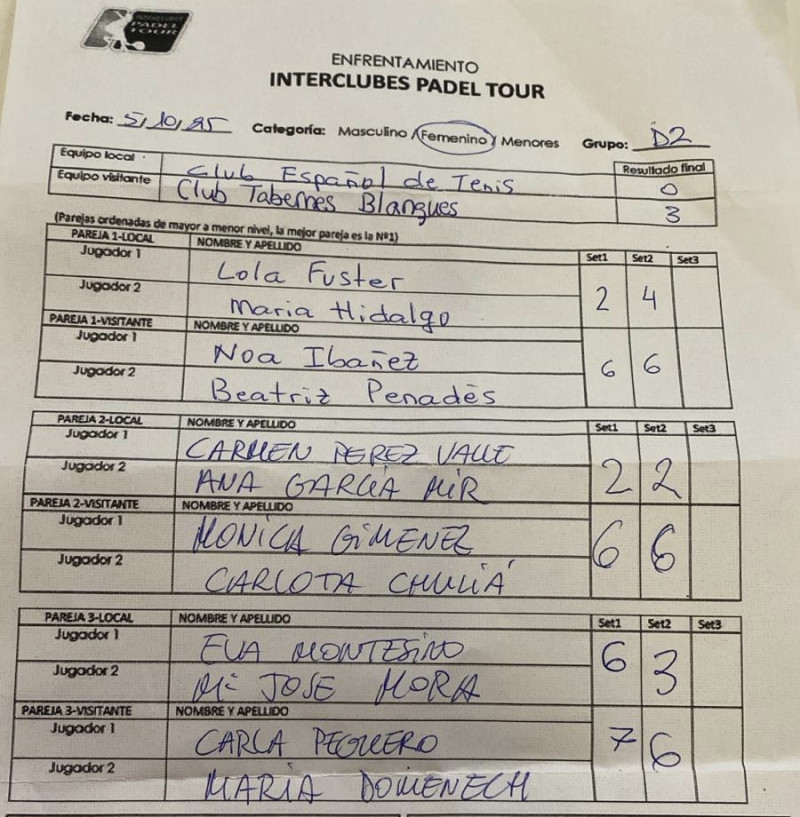 INTERCLUBES
PADEL
TOUR
ENFRENTAMIENTO
INTERCLUBES PADEL TOUR
Fecha: 5/10/25 Categoría: Masculino / Femenino / Menores Grupo: D2
Equipo local Club Español de Tenis Resultado final 0
Equipo visitante Club Tabernes Blanques 3
(Parejas ordenadas de mayor a menor nivel, la mejor pareja es la Nº1)
PAREJA 1-LOCAL NOMBRE Y APELLIDO Set1 Set2 Set3
Jugador 1 Lola Fuster
Jugador 2 Maria Hidalgo 2 4
PAREJA 1-VISITANTE NOMBRE Y APELLIDO
Jugador 1 Noa Ibañez
Jugador 2 Beatriz Penadès 6 6
PAREJA 2-LOCAL NOMBRE Y APELLIDO Set1 Set2 Set3
Jugador 1 CARMEN PEREZ VALLE
Jugador 2 ANA GARCÍA MIR 2 2
PAREJA 2-VISITANTE NOMBRE Y APELLIDO
Jugador 1 MONICA GIMENEZ
Jugador 2 CARLOTA CHULIÁ 6 6
PAREJA 3-LOCAL NOMBRE Y APELLIDO Set1 Set2 Set3
Jugador 1 EVA MONTESINO
Jugador 2 Mª JOSE MORA 6 3
PAREJA 3-VISITANTE NOMBRE Y APELLIDO
Jugador 1 CARLA PEGUERO
Jugador 2 MARIA DOMENECH 7 6